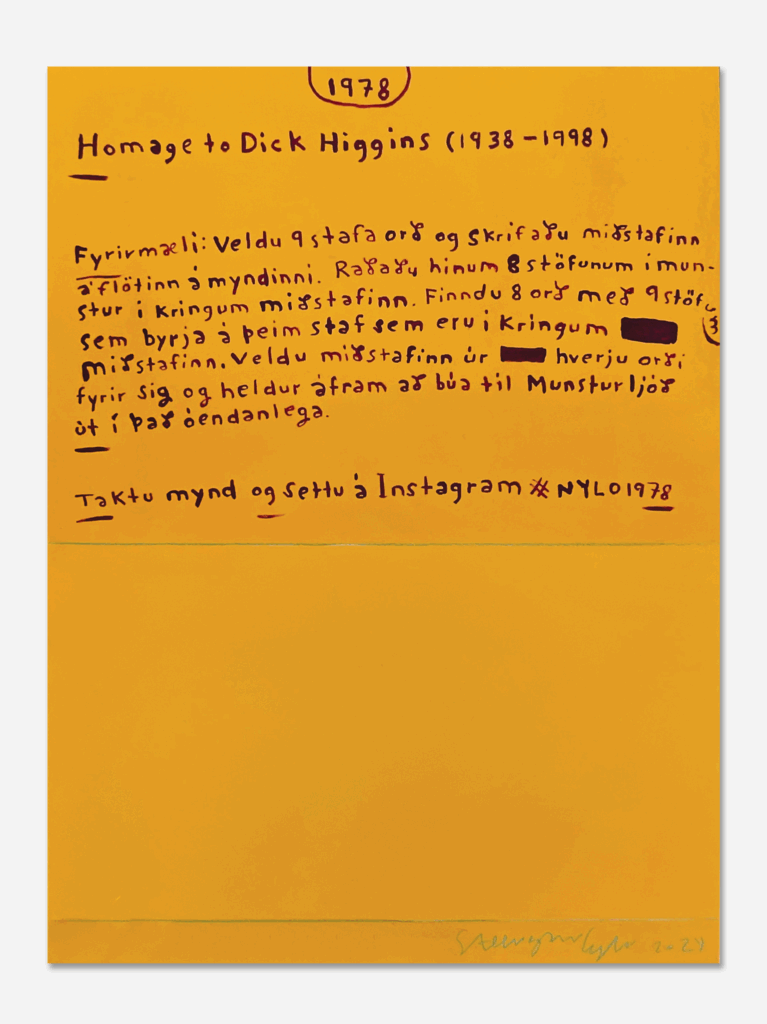 1978
Homage to Dick Higgins (1938-1998)
Fyrirmæli: Veldu 9 stafa orð og skrifaðu miðstafinn
á flötinn á myndinni. Raðaðu hinum 8 stöfunum í mun-
stur í kringum miðstafinn. Finndu 8 orð með 9 stöfu
sem byrja á þeim staf sem eru í kringum
miðstafinn. Veldu miðstafinn úr hverju orði
fyrir sig og heldur áfram að búa til Munsturljóð
út í það óendanlega.
Taktu mynd og settu á Instagram #NYLO1978
2024